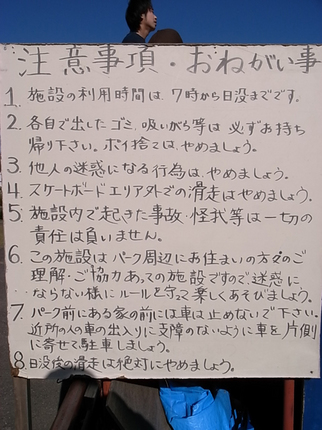 注意事項・おねがい事
1. 施設の利用時間は、7時から日没までです。
2. 各自で出したゴミ、吸いがら等は 必ずお持ち
帰り下さい。ポイ捨ては、やめましょう。
3. 他人の迷惑になる行為は、やめましょう。
4. スケートボードエリア外での滑走はやめましょう。
5. 施設内で起きた事故・怪我等は一切の
責任は負いません。
6. この施設は パーク周辺にお住まいの方々のご
理解・ご協力あっての施設ですので、迷惑に
ならない様に ルールを守って楽しくあそびましょう。
7. パーク前にある家の前には車は止めないで下さい。
近所の人の車の出入りに支障のないように車を片側
に寄せて駐車しましょう。
8. 日没後の滑走は絶対にやめましょう。